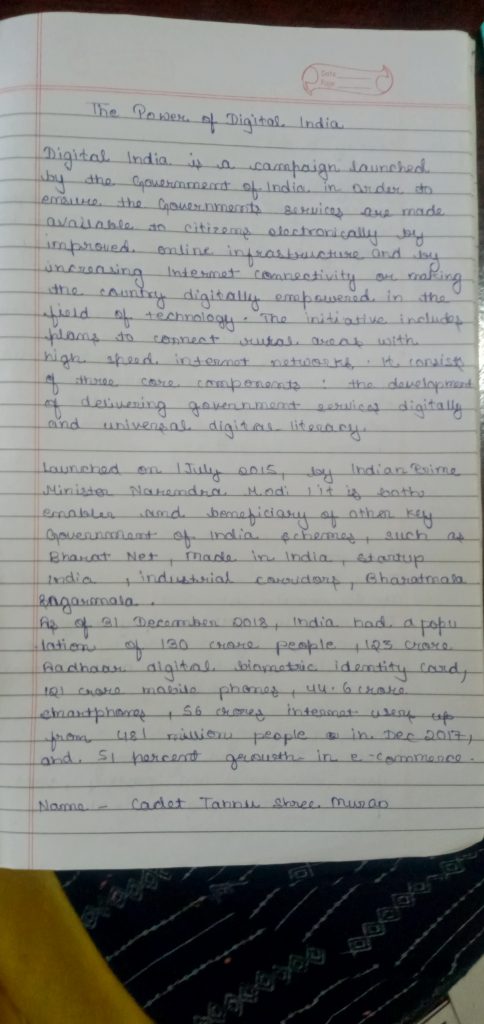 Date
Page
The Power of Digital India
Digital India is a campaign launched
by the Government of India in order to
ensure the Governments services are made
available to citizens electronically by
improved online infrastructure and by
increasing Internet connectivity or making
the country digitally empowered in the
field of technology. The initiative includes
plans to connect rural areas with
high speed internet networks. It consists
of three core components : the development
of delivering government services digitally
and universal digital literacy.
Launched on 1 July 2015, by Indian Prime
Minister Narendra Modi, it is both
enabler and beneficiary of other key
Government of India schemes, such as
Bharat Net, made in India, startup
India, industrial corridors, Bharatmala
Sagarmala.
As of 31 December 2018, India had a popu
lation of 130 crore people, 123 crore
Aadhaar digital biometric identity card,
121 crore mobile phones, 44.6 crore
smartphones, 56 crores internet users up
from 481 million people in Dec 2017,
and 51 percent growth in e-commerce.
Name - Cadet Tannu Shree